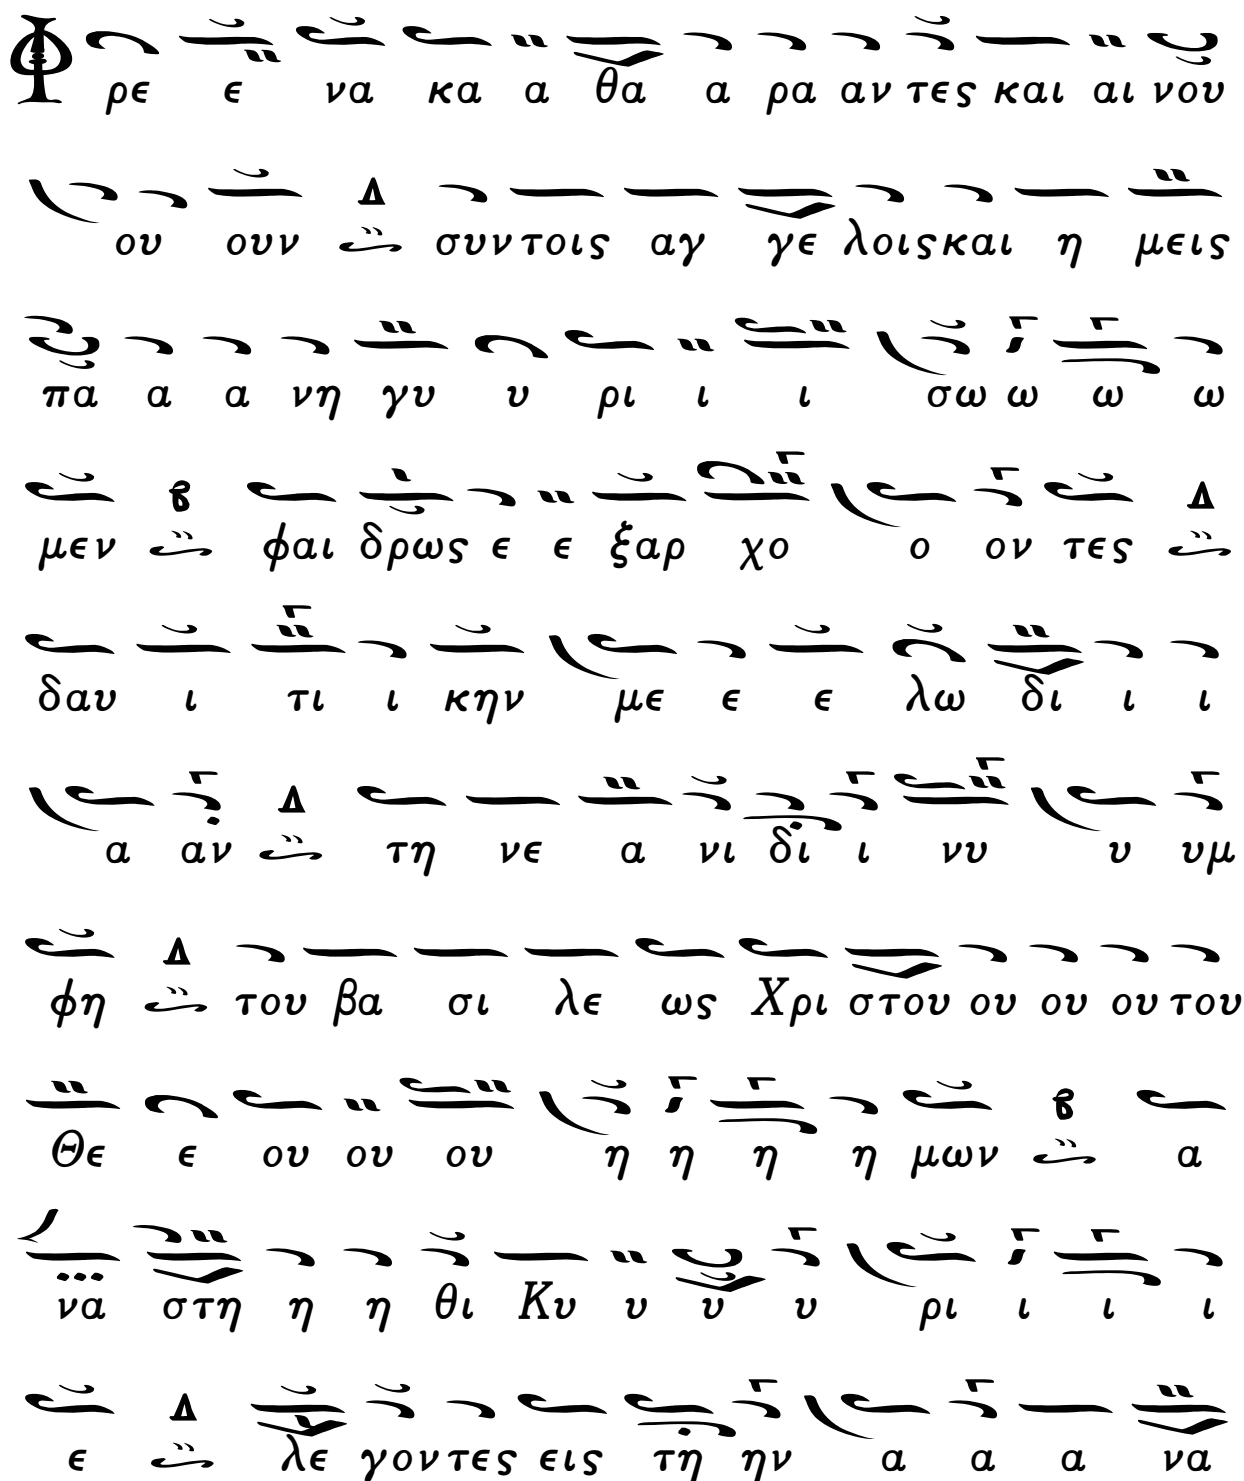 Φ ρε ε να κα α θα α ρα αν τες και αι νου
ου ουν Δ συν τοις αγ γε λοις και η μεις
πα α α νη γυ υ ρι ι ι σω ω ω ω
μεν β φαι δρως ε ε ξαρ χο ο ον τες Δ
δαυ ι τι ι κην με ε ε λω δι ι ι
α αν Δ τη νε α νι δι ι νυ υ υμ
φη Δ του βα σι λε ως Χρι στου ου ου ου του
Θε ε ου ου ου η η η η μων β α
να στη η η θι Κυ υ υ υ ρι ι ι ι
ε Δ λε γον τες εις τη ην α α α να